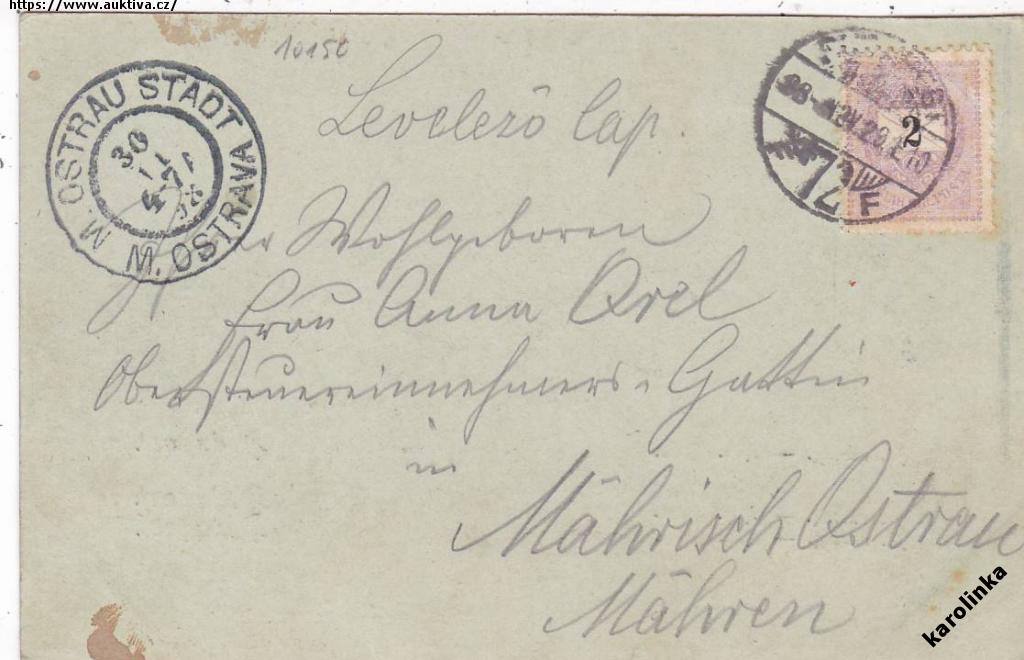 https://www.auktiva.cz/
10150
Levelező lap.
M. OSTRAU STADT
M. OSTRAVA
30
2
F
Wohlgeboren
Frau Anna Orel
Obersteuereinnehmers-Gattin
in
Mährisch Ostrau
Mähren
karolinka